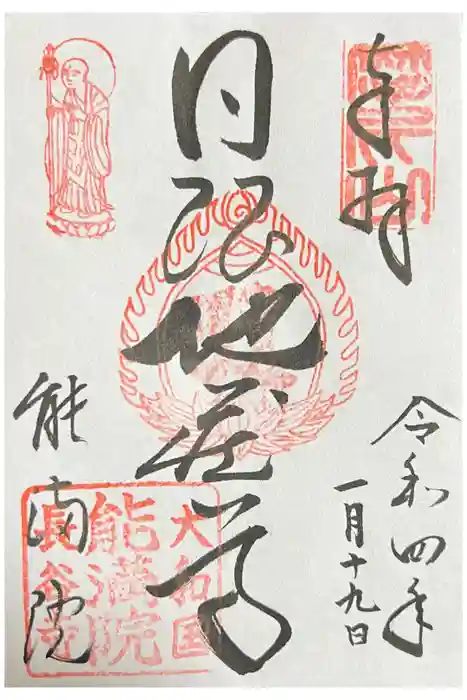 奉拝
令和四年
一月十九日
日限地蔵尊
能満院
大和国
能満院
長谷寺